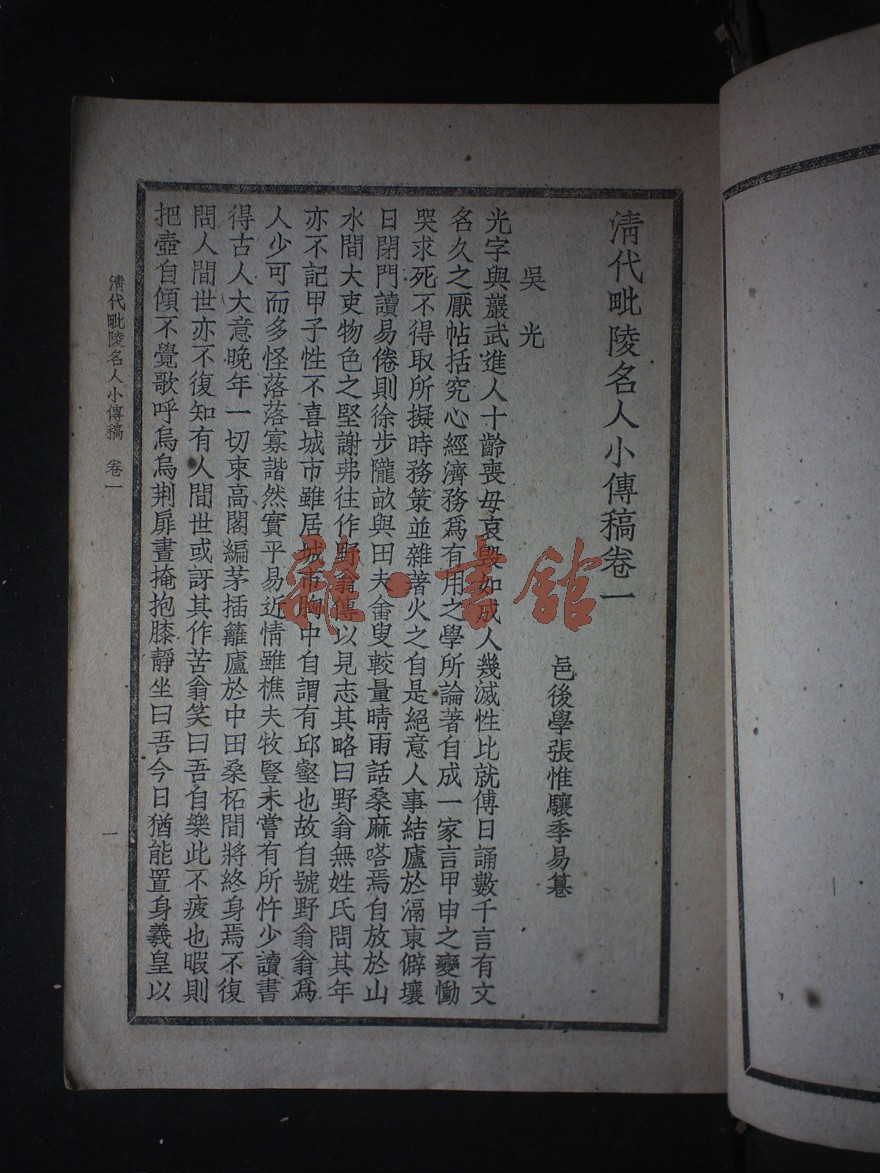 清代毗陵名人小傳稿卷一
邑後學張惟驤季易纂
吳光
光字與巖武進人十齡喪母哀毀如成人幾滅性比就傅日誦數千言有文
名久之厭帖括究心經濟務爲有用之學所論著自成一家言甲申之變慟
哭求死不得取所擬時務策並雜著火之自是絕意人事結廬於滆東僻壤
日閉門讀易倦則徐步隴畝與田夫畬叟較量晴雨話桑麻嗒焉自放於山
水間大吏物色之堅謝弗往作野翁傳以見志其略曰野翁無姓氏問其年
亦不記甲子性不喜城市雖居城市胸中自謂有邱壑也故自號野翁翁爲
人少可而多怪落落寡諧然實平易近情雖樵夫牧豎未嘗有所忤少讀書
得古人大意晚年一切束高閣編茅插籬廬於中田桑柘間將終身焉不復
問人間世亦不復知有人間世或訝其作苦翁笑曰吾自樂此不疲也暇則
把壺自傾不覺歌呼烏烏荆扉晝掩抱膝靜坐曰吾今日猶能置身羲皇以
清代毗陵名人小傳稿 卷一
一
雜·書館